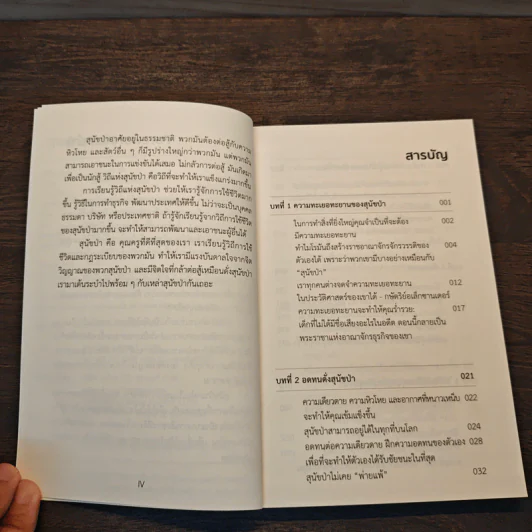 สุนัขป่าอาศัยอยู่ในธรรมชาติ พวกมันต้องต่อสู้กับความ
หิวโหย และสัตว์อื่น ๆ ก็มีรูปร่างใหญ่กว่าพวกมัน แต่พวกมัน
สามารถเอาชนะในการแข่งขันได้เสมอ ไม่กลัวการต่อสู้ มันเกิดมา
เพื่อเป็นนักสู้ วิถีแห่งสุนัขป่า คือวิถีที่จะทำให้เราแข็งแกร่งมากขึ้น
การเรียนรู้วิถีแห่งสุนัขป่า ช่วยให้เรารู้จักการใช้ชีวิตมาก
ขึ้น รู้วิธีในการทำธุรกิจ พัฒนาประเทศให้ดีขึ้น ไม่ว่าจะเป็นบุคคล
ธรรมดา บริษัท หรือประเทศชาติ ถ้ารู้จักเรียนรู้จากวิถีการใช้ชีวิต
ของสุนัขป่ามากขึ้น จะทำให้สามารถพัฒนาและเอาชนะผู้อื่นได้
สุนัขป่า คือ คุณครูที่ดีที่สุดของเรา เราเรียนรู้วิถีการใช้
ชีวิตและกฎระเบียบของพวกมัน ทำให้เรามีแรงบันดาลใจจากจิต
วิญญาณของพวกสุนัขป่า และมีจิตใจที่กล้าต่อสู้เหมือนดั่งสุนัขป่า
เรามาเต้นระบำไปพร้อม ๆ กับเหล่าสุนัขป่ากันเถอะ
IV
สารบัญ
บทที่ 1 ความทะเยอทะยานของสุนัขป่า 001
ในการทำสิ่งที่ยิ่งใหญ่คุณจำเป็นที่จะต้อง 002
มีความทะเยอทะยาน
ทำไมโรมันถึงสร้างราชอาณาจักรจักรวรรดิของ 004
ตัวเองได้ เพราะว่าพวกเขามีบางอย่างเหมือนกับ
“สุนัขป่า”
เราทุกคนต่างจดจำความทะเยอทะยาน 012
ในประวัติศาสตร์ของเขาได้ - กษัตริย์อเล็กซานเดอร์
ความทะเยอทะยานจะทำให้คุณร่ำรวย: 017
เด็กที่ไม่ได้มีชื่อเสียงอะไรในอดีต ตอนนี้กลายเป็น
พระราชาแห่งอาณาจักรธุรกิจของเขา
บทที่ 2 อดทนดั่งสุนัขป่า 021
ความเดียวดาย ความหิวโหย และอากาศที่หนาวเหน็บ 022
จะทำให้คุณเข้มแข็งขึ้น
สุนัขป่าสามารถอยู่ได้ในทุกที่บนโลก 024
อดทนต่อความเดียวดาย ฝึกความอดทนของตัวเอง 028
เพื่อที่จะทำให้ตัวเองได้รับชัยชนะในที่สุด
สุนัขป่าไม่เคย “พ่ายแพ้” 032